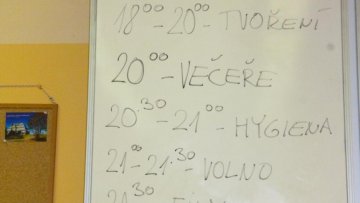 18⁰⁰-20⁰⁰-TVOŘENÍ
20⁰⁰-VEČEŘE
20.³⁰-21⁰⁰-HYGIENA
21⁰⁰-21.³⁰-VOLNO
21³⁰